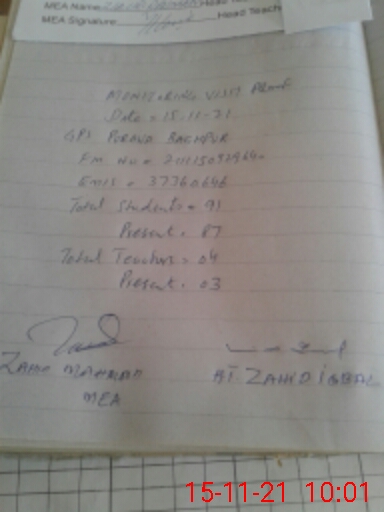 MEA Name
MEA Signature Head Teach
MONITORING VISIT PROOF
Date = 15-11-21
GPS PURANA
EMIS = 37360646
Total Students = 91
Present = 87
Total Teachers = 04
Present = 03
ZAHID MAHMOOD
MEA
HT ZAHID IQBAL
15-11-21 10:01